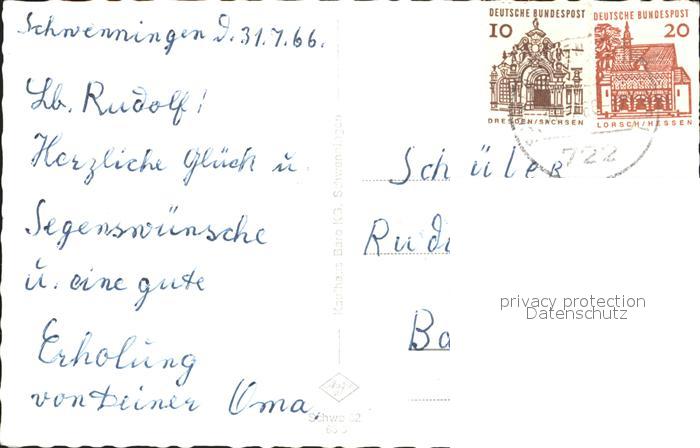 Schwenningen d. 31.7.66.
DEUTSCHE BUNDESPOST
10
DRESDEN/SACHSEN
DEUTSCHE BUNDESPOST
20
LORSCH/HESSEN
722
Lb. Rudolf!
Herzliche Glück u.
Segenswünsche
u. eine gute
Erholung
von Deiner Oma.
Kaufhaus Baro KG. Schwenningen
Schwe 62
Schüler
Rud
Ba
privacy protection
Datenschutz